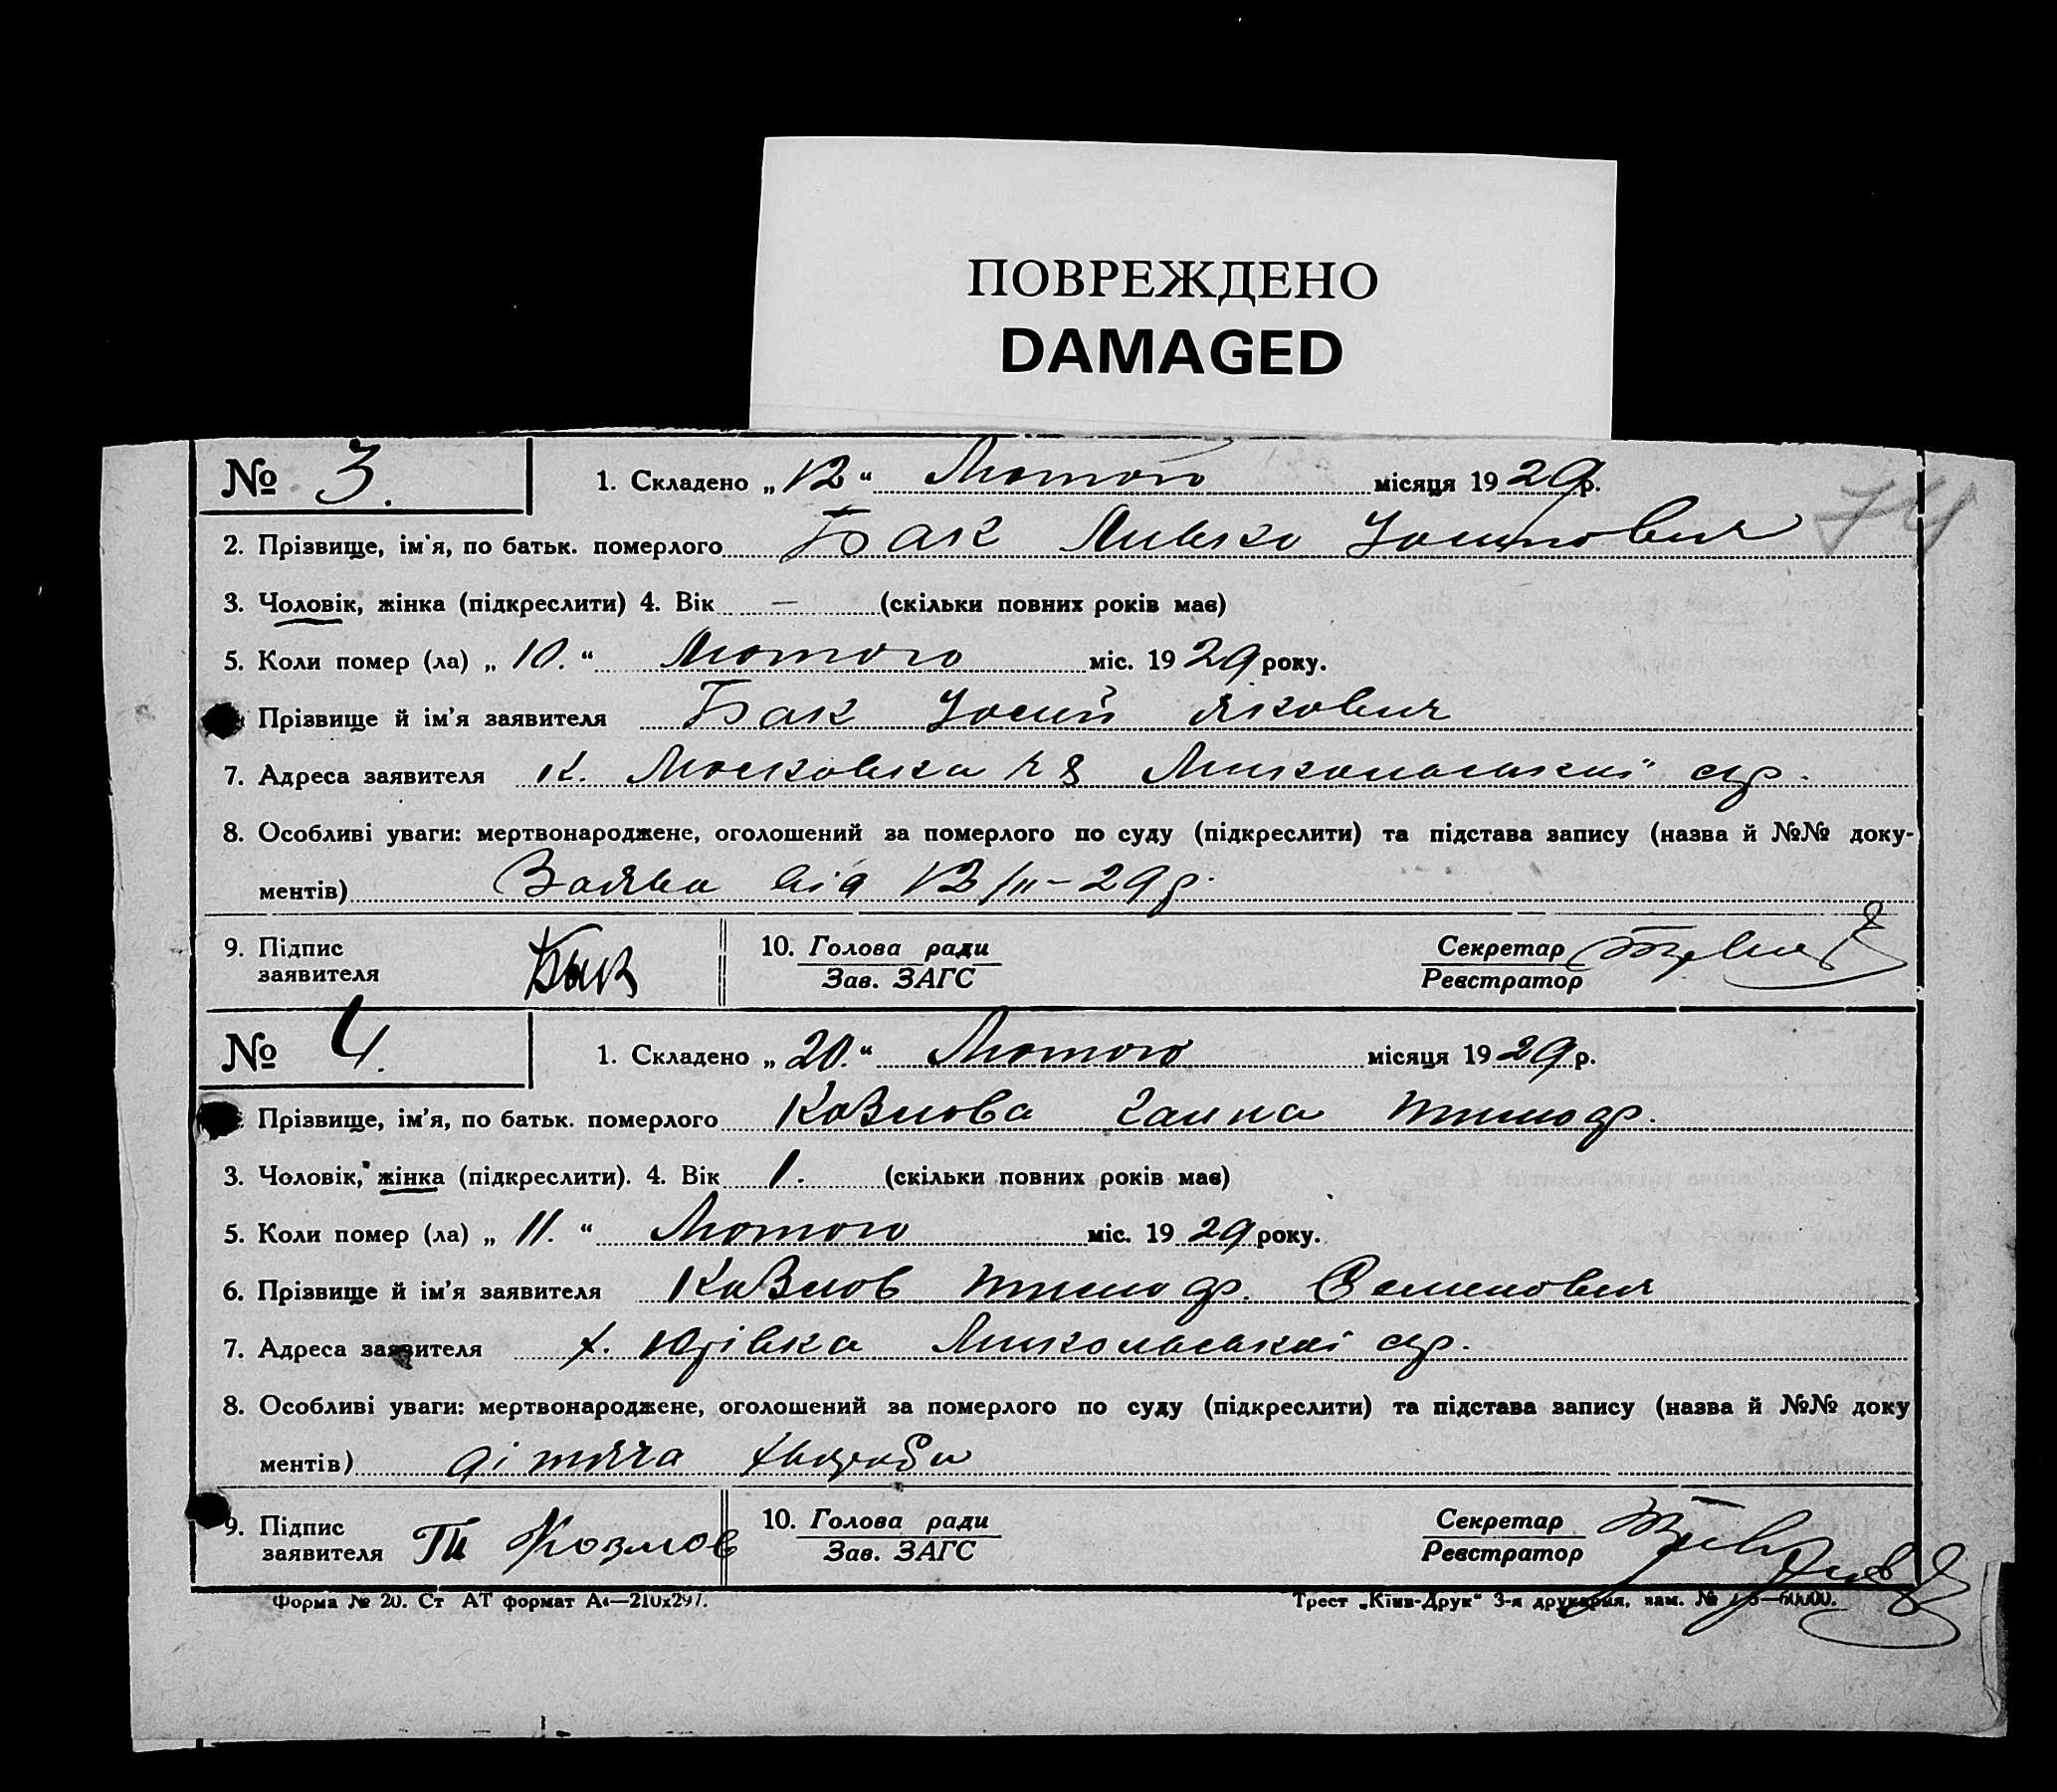 ПОВРЕЖДЕНО
DAMAGED
№ 3. 1. Складено „12“ Лютого місяця 1929р.
2. Прізвище, ім'я, по батьк. померлого Бак
3. Чоловік, жінка (підкреслити) 4. Вік — (скільки повних років має)
5. Коли помер (ла) „10.“ Лютого міс. 1929 року.
Прізвище й ім'я заявителя Бак Йосип Якович
7. Адреса заявителя к. Московка
8. Особливі уваги: мертвонароджене, оголошений за померлого по суду (підкреслити) та підстава запису (назва й №№ доку-
ментів) Заява від 12/II-29р.
9. Підпис заявителя 10. Голова ради Секретар
Зав. ЗАГС Реєстратор
№ 4. 1. Складено „20.“ Лютого місяця 1929р.
Прізвище, ім'я, по батьк. померлого Козлова Ганна Тимоф.
3. Чоловік, жінка (підкреслити). 4. Вік 1. (скільки повних років має)
5. Коли помер (ла) „11.“ Лютого міс. 1929 року.
6. Прізвище й ім'я заявителя Козлов Тимоф. Семенович
7. Адреса заявителя х. Юрівка
8. Особливі уваги: мертвонароджене, оголошений за померлого по суду (підкреслити) та підстава запису (назва й №№ доку
ментів) дітяча хвороба
9. Підпис заявителя Ти Козлов 10. Голова ради Секретар
Зав. ЗАГС Реєстратор
Форма № 20. Ст АТ формат А4—210х297. Трест „Київ-Друк“ 3-я друкарня, зам. №